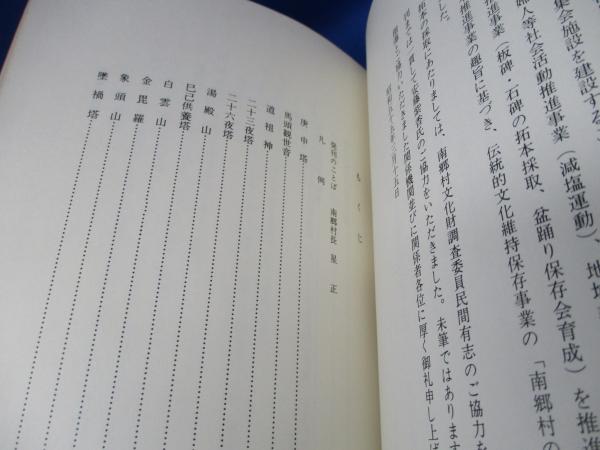 集会施設を建設するこ
婦人等社会活動推進事業（減塩運動）、地域
推進事業（板碑・石碑の拓本採取、盆踊り保存会育成）を推進
推進事業の趣旨に基づき、伝統的文化維持保存事業の「南郷村の
拓本の採取にあたりましては、南郷村文化財調査委員民間有志のご協力を
ご協力をいただきました。末筆ではあります
ご協力いただきました関係機関並びに関係者各位に厚く御礼申し上げ
昭和五十五年三月十五日
もくじ
発刊のことば 南郷村長 星 正
凡例
庚申塔
馬頭観世音
道祖神
二十三夜塔
二十六夜塔
湯殿山
巳己供養塔
白雲山
金毘羅
象頭山
墜橋塔